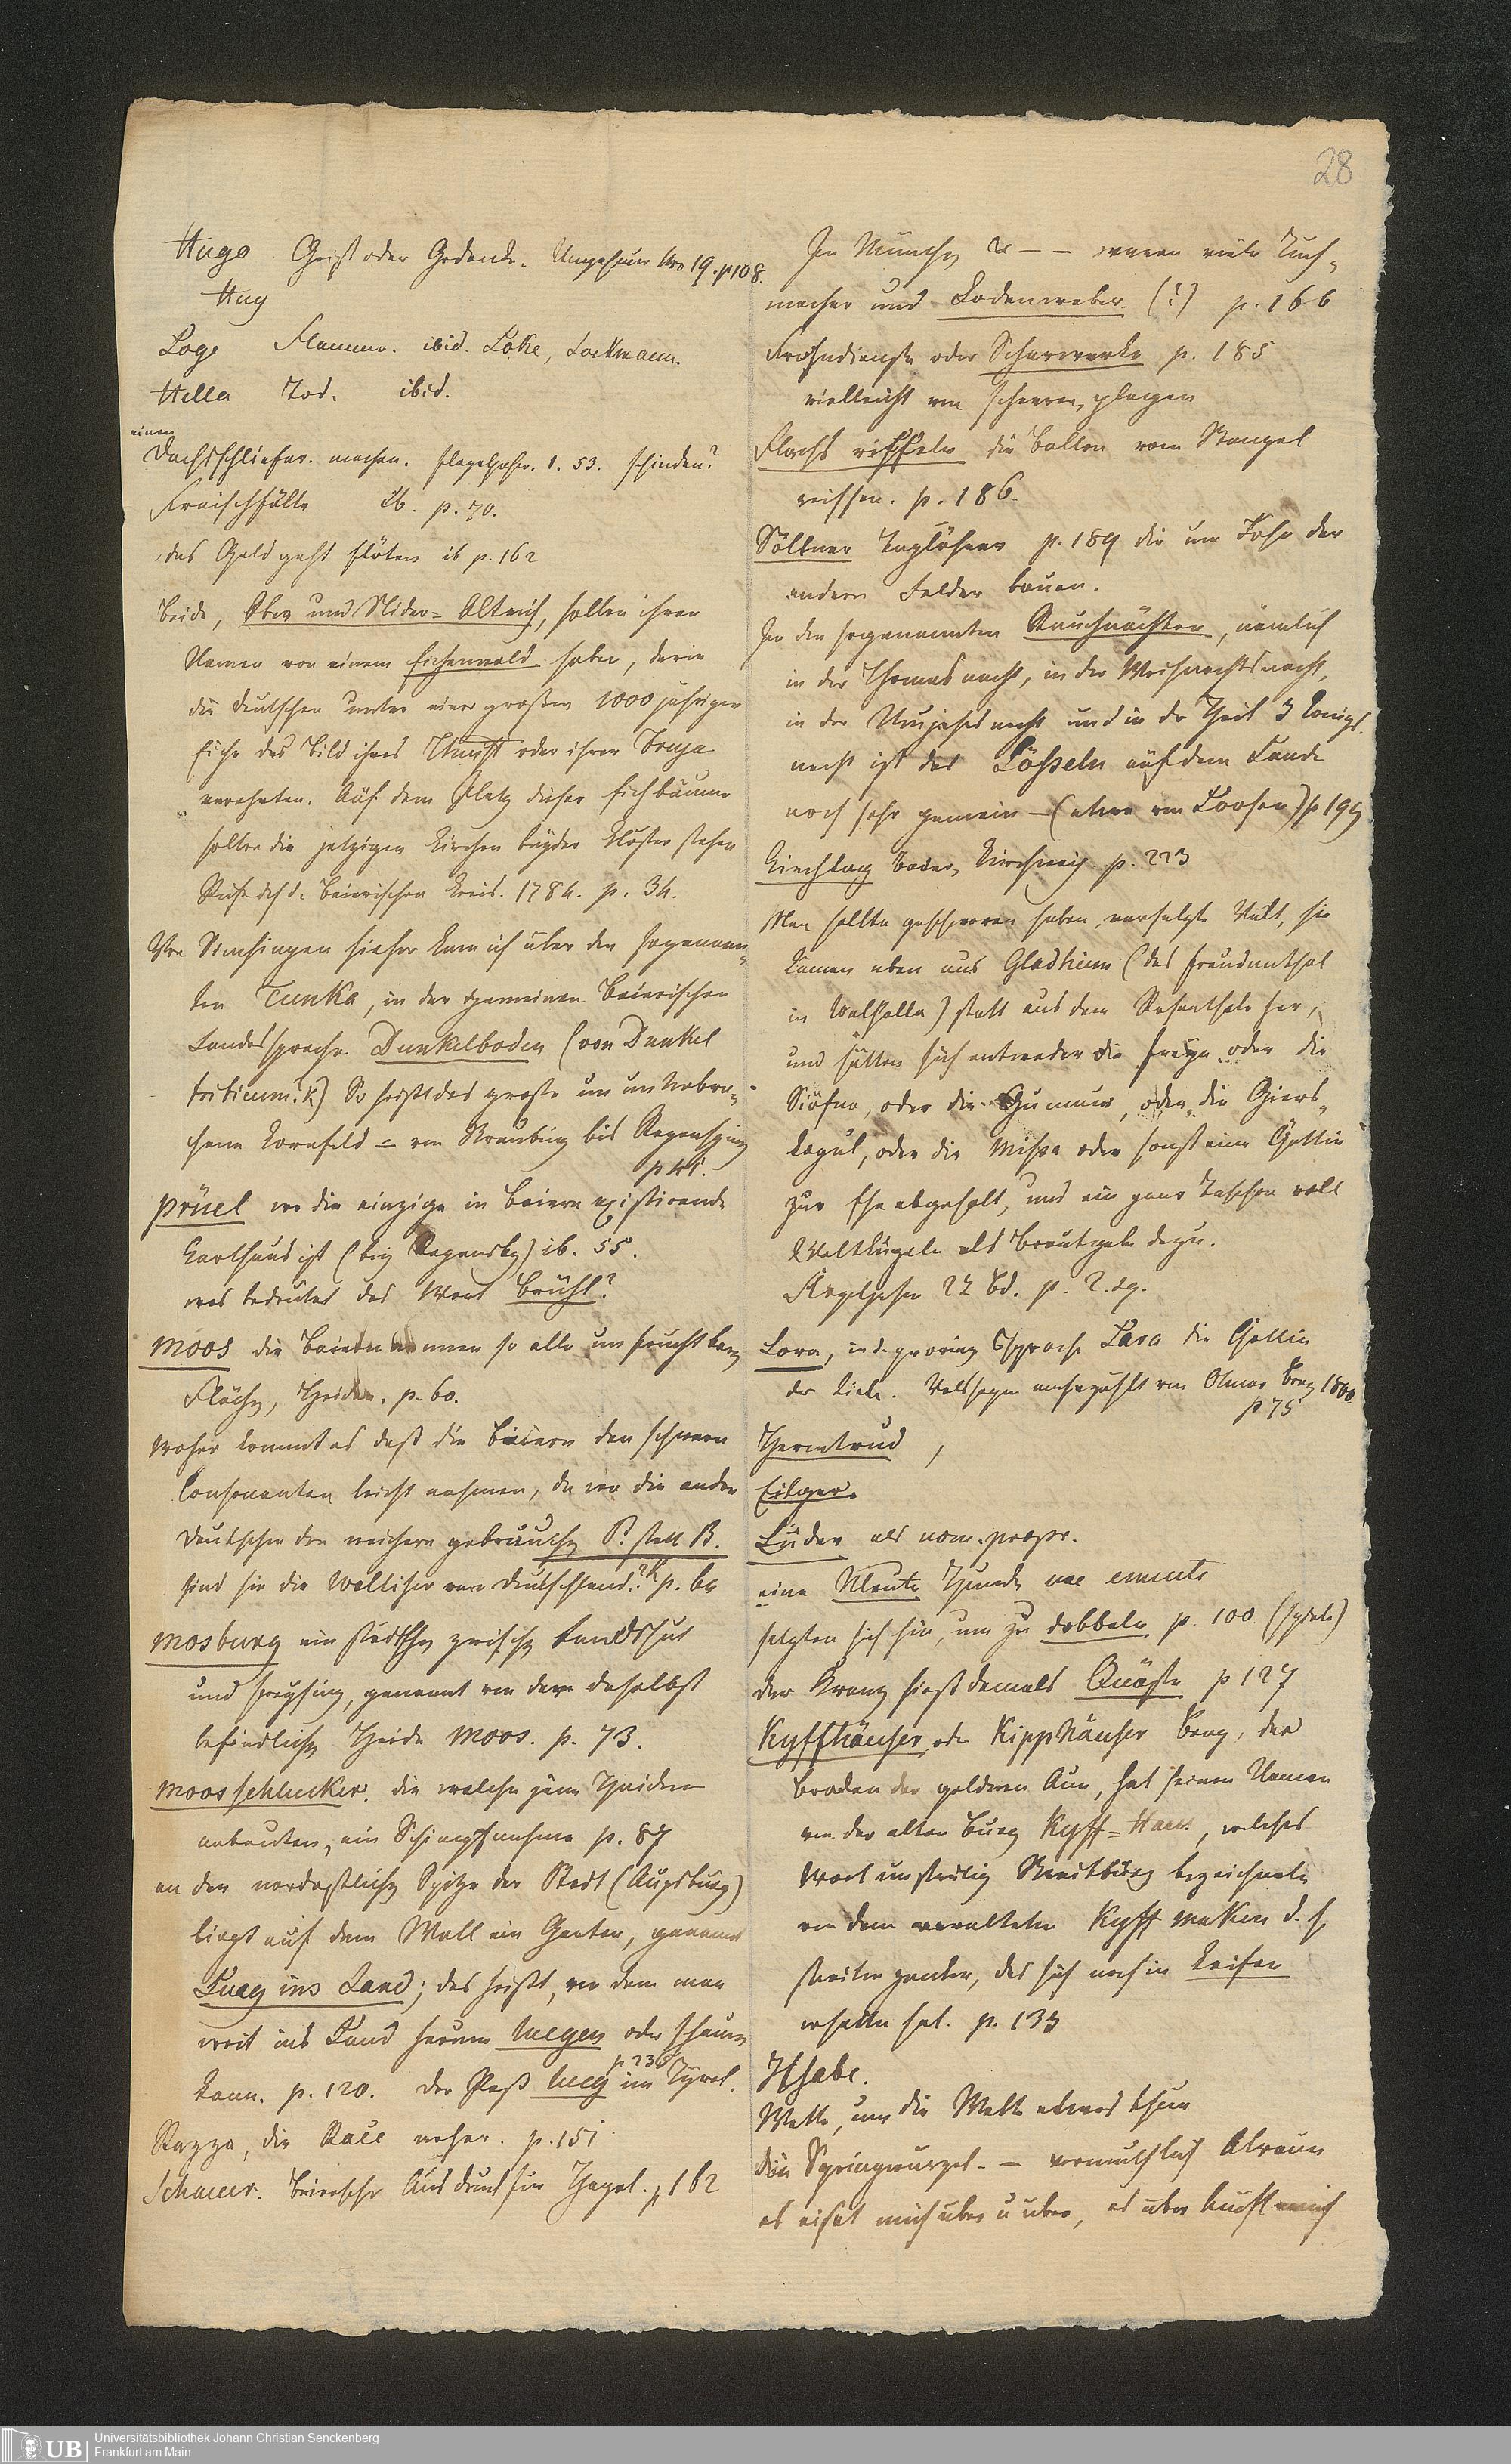 28
Hugo Geist oder Gedanke. Ungeheuer Nro 19. p 108.
Hug
Loge Flamme. ibid. Loke, Lockmann.
Hella Tod. ibid.
einen
Dachsschliefer machen. flegeljahre. 1. 53. schinden?
Fraischfälle ib. p. 70.
das Geld geht flöten ib p. 162
beide, Ober und Nider-Altaich, sollen ihren
Namen von einem Eichenwald haben, darin
die deutschen unter einer großen 1000 jährigen
Eiche das Bild ihres oder ihrer Freya
verehrten. Auf dem Platz dieser Eichbäume
sollen die jetzigen Kirchen beyder Klöster stehen
Reise dch d. Beierischen Kreis. 1784. p. 34.
Von hieher kam ich über den sogenann-
ten Tunka, in der gemeinen Beierischen
Landessprache. Dunkelboden (von Dunkel
triticum. K) So heißt das große un ununterbro-
chene Kornfeld = von Straubing bis Regensburg
p 41.
prüel wo die einzige in Beiern existirende
Karthaus ist (bey Regensbg) ib. 55.
was bedeutet das Wort Brühl?
Moos die Beiern nennen so alle unfruchtbare
Fläche, Heiden. p. 60.
Woher kommt es daß die Beiern den schweren
Consonanten leicht nehmen, da wo die andern
Deutschen den weichern gebrauchen P. statt B.
sind sie die Walliser von Deutschland?? K p. 64
Mosburg ein städtchen zwischen Landshut
und freysing, genannt von der daselbst
befindlichen Heide Moos. p. 73.
Moosschlucker. die welche jene Heiden
anbauten, ein Schimpfnahme p. 87
an der nordostlichen Spitze der Stadt (Augsburg)
liegt auf dem Wall ein Garten, genannt
Lueg ins Land; das heißt, von dem man
weit ins Land herum luegen oder schauen
p 236
kann. p. 120. Der Paß lueg im Tyrol.
Razza, die Race woher. p. 151
Schauer. Beierscher Ausdruck für Hagel. p 162
In München &c — — waren viele Tuch-
macher und Lodenweber (?) p. 166
Frohndienste oder Scharwerke p. 185
vielleicht von scheeren, plagen
Flachs riffeln die bollen vom Stengel
reissen. p. 186.
Söllner Taglöhner p. 189 die um Lohn der
andern Felder bauen.
In den sogenannten Rauchnächten, nämlich
in der Thomasnacht, in der Weihnachtsnacht,
in der Neujahrsnacht und in der Heil 3 Königs-
nacht ist das Lösseln auf dem Lande
noch sehr gemein — (etwa von Loosen) p 194
Kirchtag Beier. Kirchweih. p. 223
Man sollte geschworen haben, verfolgte Vult, sie
kämen eben aus Gladheim (das freudenthal
in Walhalla) statt aus dem Rosenthale her,
und hätten sich entweder die freya, oder die
Siöfna, oder die Gunnur, oder die Giers-
kogul, oder die Mista oder sonst eine Göttin
zur Ehe abgeholt, und ein paar Taschen voll
Weltkugeln als Brautgabe dazu.
Flegeljahre 22 Bd. p. 2. sq.
Lora, in d. Sprache Lara die Göttin
der Liebe. Volssagen nacherzählt von Otmar Brem 1800
p 75
Hermtrud,
Eilger.
Lüder als nom. propr.
eine Meute Hunde une emeute
setzten sich hin, um zu dobbeln p. 100. (spiele)
der Kranz hieß damals Quäste p 127
Kyffhäuser, oder Kipphäuser Berg, der
Brocken der goldenen Aue, hat seinen Namen
von der alten Burg Kyff-Haus, welches
Wort unstreitig Streitburg bezeichnete
von dem veralteten Kyff maken d. h.
streiten zanken, das sich noch in keifen
erhalten hat. p. 133
Habe.
Wette, um die Wette etwas thun
die Springwurzel. — vermuthlich Alraun
es eiset mich über u über, es über lauft mich